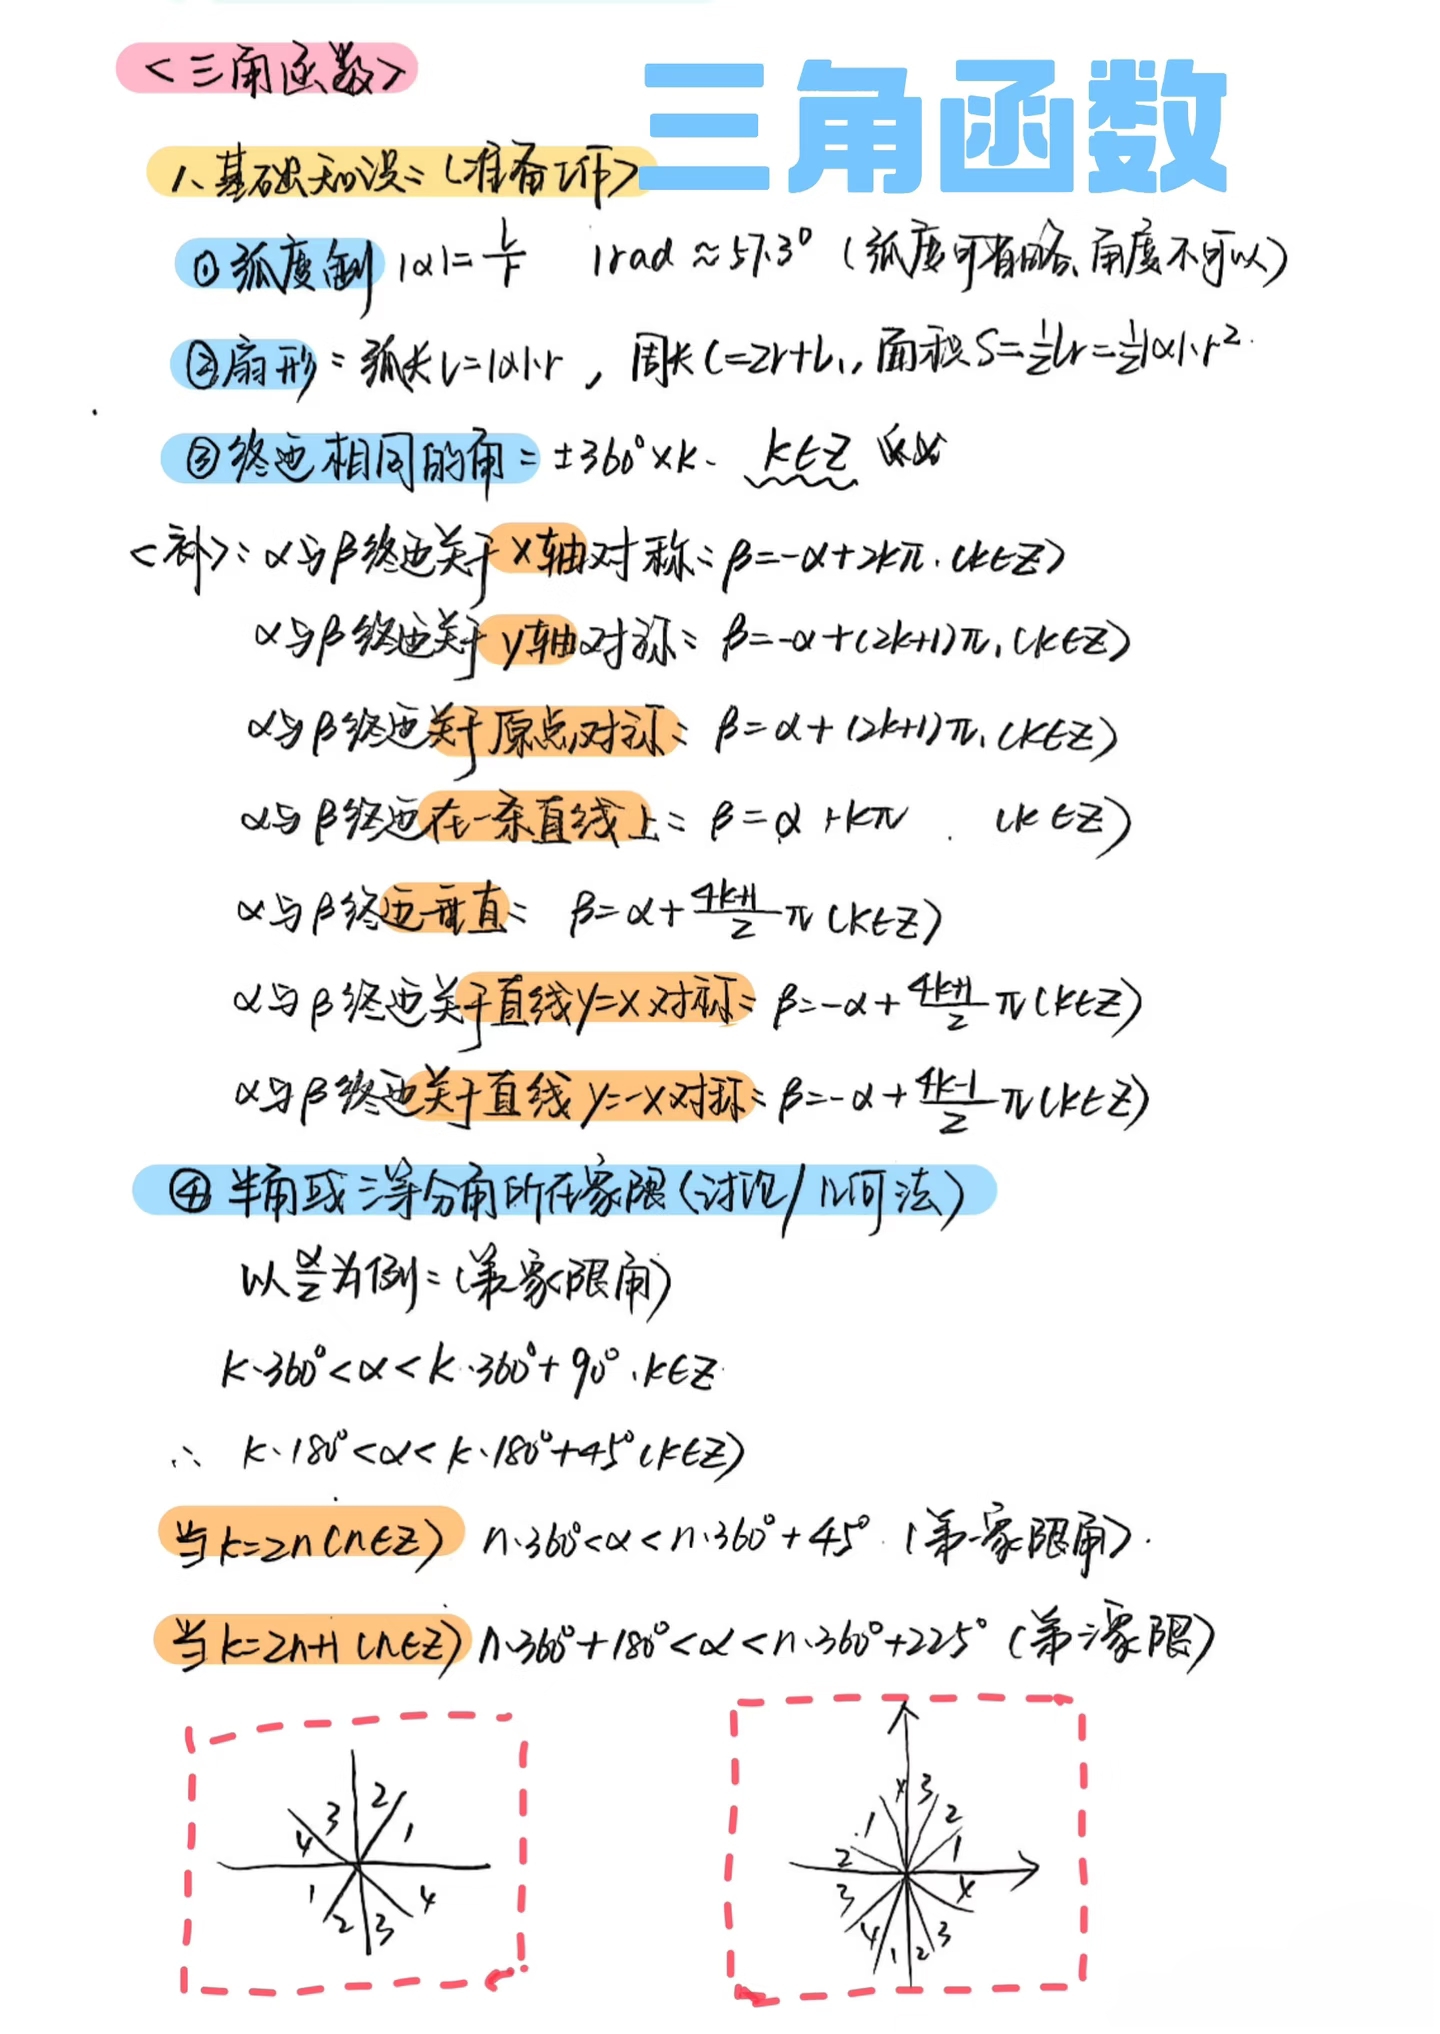 <三角函数>
三角函数
1、基础知识：(准备工作>
①弧度制 |α|=l/r 1rad≈57.3° (弧度可省略、角度不可以)
②扇形：弧长l=|α|·r，周长C=2r+l，面积S=½lr=½|α|·r².
③终边相同的角：±360°×k. k∈Z
<补>：α与β终边关于x轴对称：β=-α+2kπ.(k∈Z)
α与β终边关于y轴对称：β=-α+(2k+1)π,(k∈Z)
α与β终边关于原点对称：β=α+(2k+1)π,(k∈Z)
α与β终边在一条直线上：β=α+kπ.(k∈Z)
α与β终边垂直：β=α+(4k+1)/2 π(k∈Z)
α与β终边关于直线y=x对称：β=-α+(4k+1)/2 π(k∈Z)
α与β终边关于直线y=-x对称：β=-α+(4k-1)/2 π(k∈Z)
④半角或三等分角所在象限(讨论/几何法)
以α/2为例：(第一象限角)
k·360°<α<k·360°+90°.k∈Z
∴ k·180°<α<k·180°+45°(k∈Z)
当k=2n(n∈Z) n·360°<α<n·360°+45° (第一象限角).
当k=2n+1(n∈Z) n·360°+180°<α<n·360°+225° (第三象限)
3 2
4 1
1 4
2 3
4 3
1 2
2 1
3 4
4 1 2 3